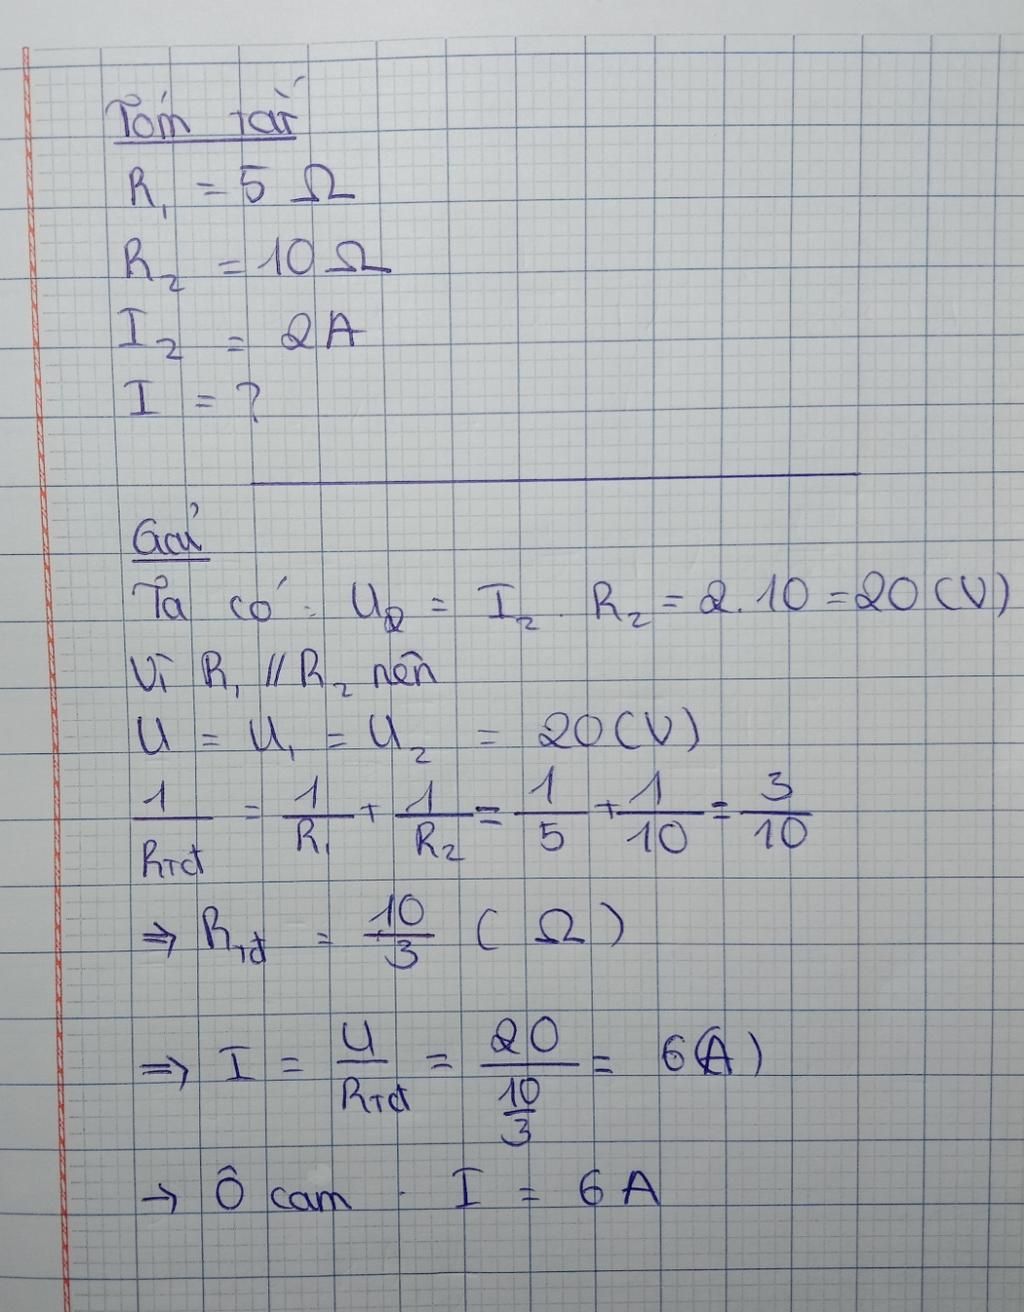 Tóm tắt
R₁ = 5 Ω
R₂ = 10 Ω
I₂ = 2A
I = ?
Giải
Ta có: U₂ = I₂ . R₂ = 2.10 = 20 (V)
Vì R₁ // R₂ nên
U = U₁ = U₂ = 20 (V)
1/Rtđ = 1/R₁ + 1/R₂ = 1/5 + 1/10 = 3/10
⇒ Rtđ = 10/3 (Ω)
⇒ I = U/Rtđ = 20/(10/3) = 6(A)
→ Ô cam . I = 6 A